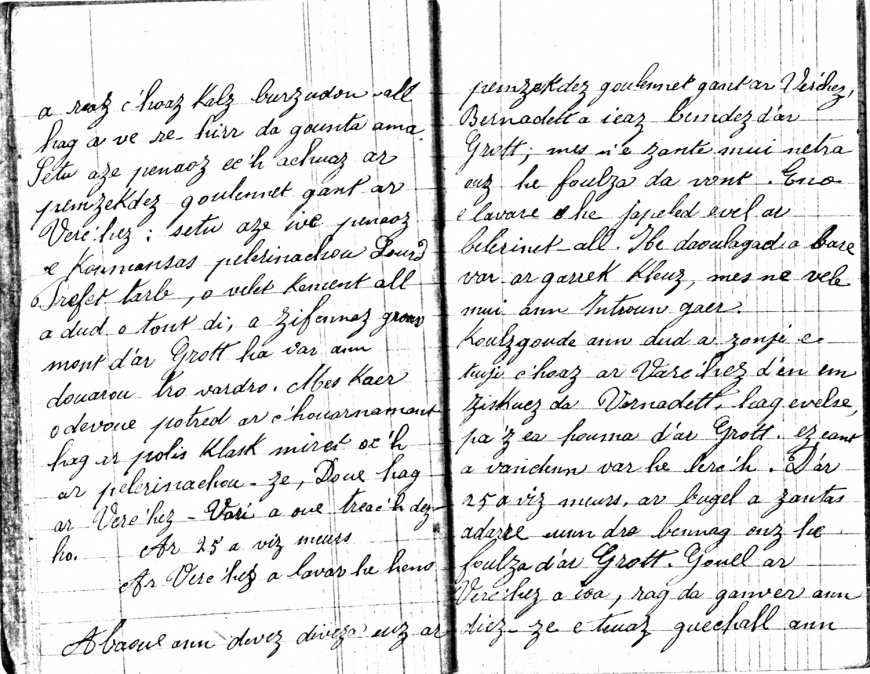 a reaz c'hoaz Kalz burzudou-all
hag a ve re-hirr da gounta ama.
Setu aze penaoz ec'h achuaz ar
pemzekdez goulennet gant ar
Verc'hez; setu aze ive penaoz
e Koumansas pelerinachou Lourd
Prefet tarb, o velet Kement all
a dud o tont di, a zifennaz groas
mont d'ar Grott ha var ann
douarou tro vardro. Mes Kaer
o devoue potred ar c'houarnamant
hag ar polis Klask miret oc'h
ar pelerinachou-ze, Doue hag
ar Verc'hez-Vari a oue treac'h dez-
ho. Ar 25 a viz meurs
Ar Verc'hez a lavar he hano
Abaoue ann devez diveza euz ar
pemzekdez goulennet gant ar Verc'hez,
Bernadett a ieaz bemdez d'ar
Grott; mes n'e zante mui netra
ouz he foulza da vont. Eno
e lavare he japeled evel ar
belerinet-all. He daoulagad a bare
var ar garrek Kleuz, mes ne vele
mui ann Introun gaer.
Koulzgoude ann dud a zonje e
teuje c'hoaz ar Varc'hez d'en em
ziskuez da Vernadett, hag evelse,
pa 'z ea houma d'ar Grott, ez eant
a vandenn var he lerc'h. D'ar
25 a viz meurs, ar bugel a zantas
adarre eunn dra bennag ouz he
foulza d'ar Grott. Gouel ar
Verc'hez a ioa, rag da ganver ann
diez-ze e teuaz guechall ann